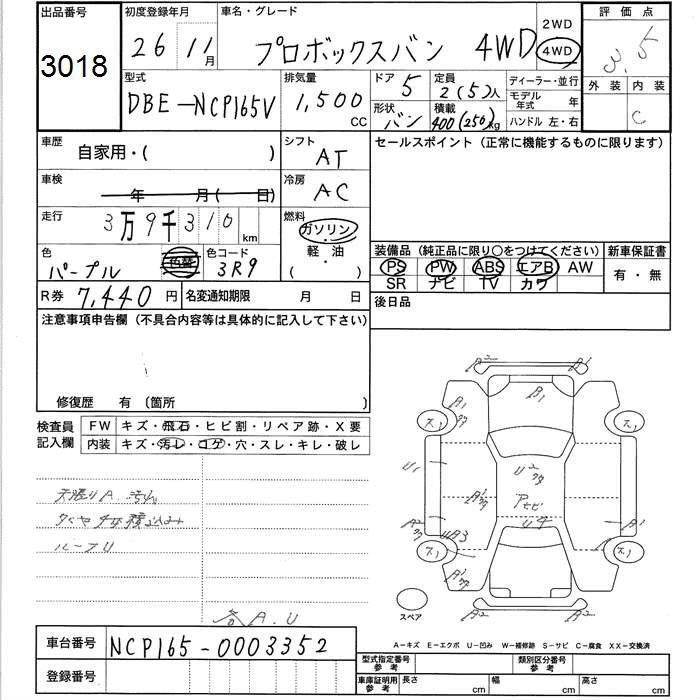 出品番号 初度登録年月 車名・グレード 2WD 4WD 評価点
3018 26年 11月 プロボックスバン 4WD 3.5
外装 内装 C
型式 排気量 ドア 5 定員 2(5)人 ディーラー・並行
DBE-NCP165V 1,500 CC 形状 バン 積載 400(250)kg モデル年式 年
ハンドル 左・右
車歴 自家用・( ) シフト AT セールスポイント (正常に機能するものに限ります)
車検 年 月( 日) 冷房 AC
走行 3万9千310 km 燃料 ガソリン・軽油・( )
色 パープル 色替 色コード 3R9
装備品 (純正品に限り○をつけてください) 新車保証書
PS PW ABS エアB AW 有・無
SR ナビ TV カワ
R券 7,440円 名変通知期限 月 日 後日品
注意事項申告欄 (不具合内容等は具体的に記入して下さい)
修復歴 有 〔箇所 〕
検査員記入欄 FW キズ・飛石・ヒビ割・リペア跡・X要
内装 キズ・汚レ・コゲ・穴・スレ・キレ・破レ
天張りA 汚れ
タイヤ4本積込み
ルーフU
各A.U
A2 A1
A1 B1
ス1 ス1
U1 U2
A1 A2 A1
UA3 U4
ス1 ス1
A2 A2
スペア
A-キズ E-エクボ U-凹み W-補修跡 S-サビ C-腐食 XX-交換済
車台番号 NCP165-0003352
登録番号
型式指定番号参考 類別区分番号参考
車庫証明用参考 長さ cm 幅 cm 高さ cm